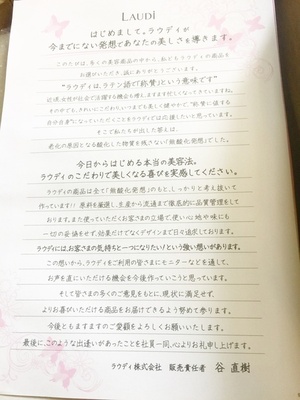 LAUDI
はじめまして。ラウディが
今までにない発想であなたの美しさを導きます。
このたびは、多くの美容商品の中から、私どもラウディの商品を
お選びいただき、誠にありがとうございます。
"ラウディは、ラテン語で「称賛」という意味です"
近頃、女性が社会で活躍する機会も増え、ますます忙しくなってきていますね。
その中でも、きれいにこだわり、いつまでも美しく健やかで、"称賛に値する
自分自身"になっていただくことをラウディは応援したいと思っています。
そこで私たちが出した答えは、
老化の原因となる酸化した物質を残さない「無酸化発想」でした。
今日からはじめる本当の美容法。
ラウディのこだわりで美しくなる喜びを実感してください。
ラウディの商品は全て「無酸化発想」のもと、しっかりと考え抜いて
作っています!! 原料を厳選し、生産から流通まで徹底的に品質管理をして
おります。また使っていただくお客さまの立場で、使い心地や味にも
一切の妥協をせず、効果だけでなくデザインまで日々追求しております。
ラウディには、お客さまの気持ちと一つになりたい!という強い想いがあります。
この想いから、ラウディをご利用の皆さまにモニターなどを通して、
お声を直にいただける機会を今後作っていこうと思っています。
そして皆さまから、多くのご意見をもとに、現状に満足せず、
よりお喜びいただける商品をお届けできるよう努めて参ります。
今後ともますますのご愛顧をよろしくお願いいたします。
最後に、このような出逢いがあったことを社員一同、心よりお礼申し上げます。
ラウディ株式会社 販売責任者 谷 直樹